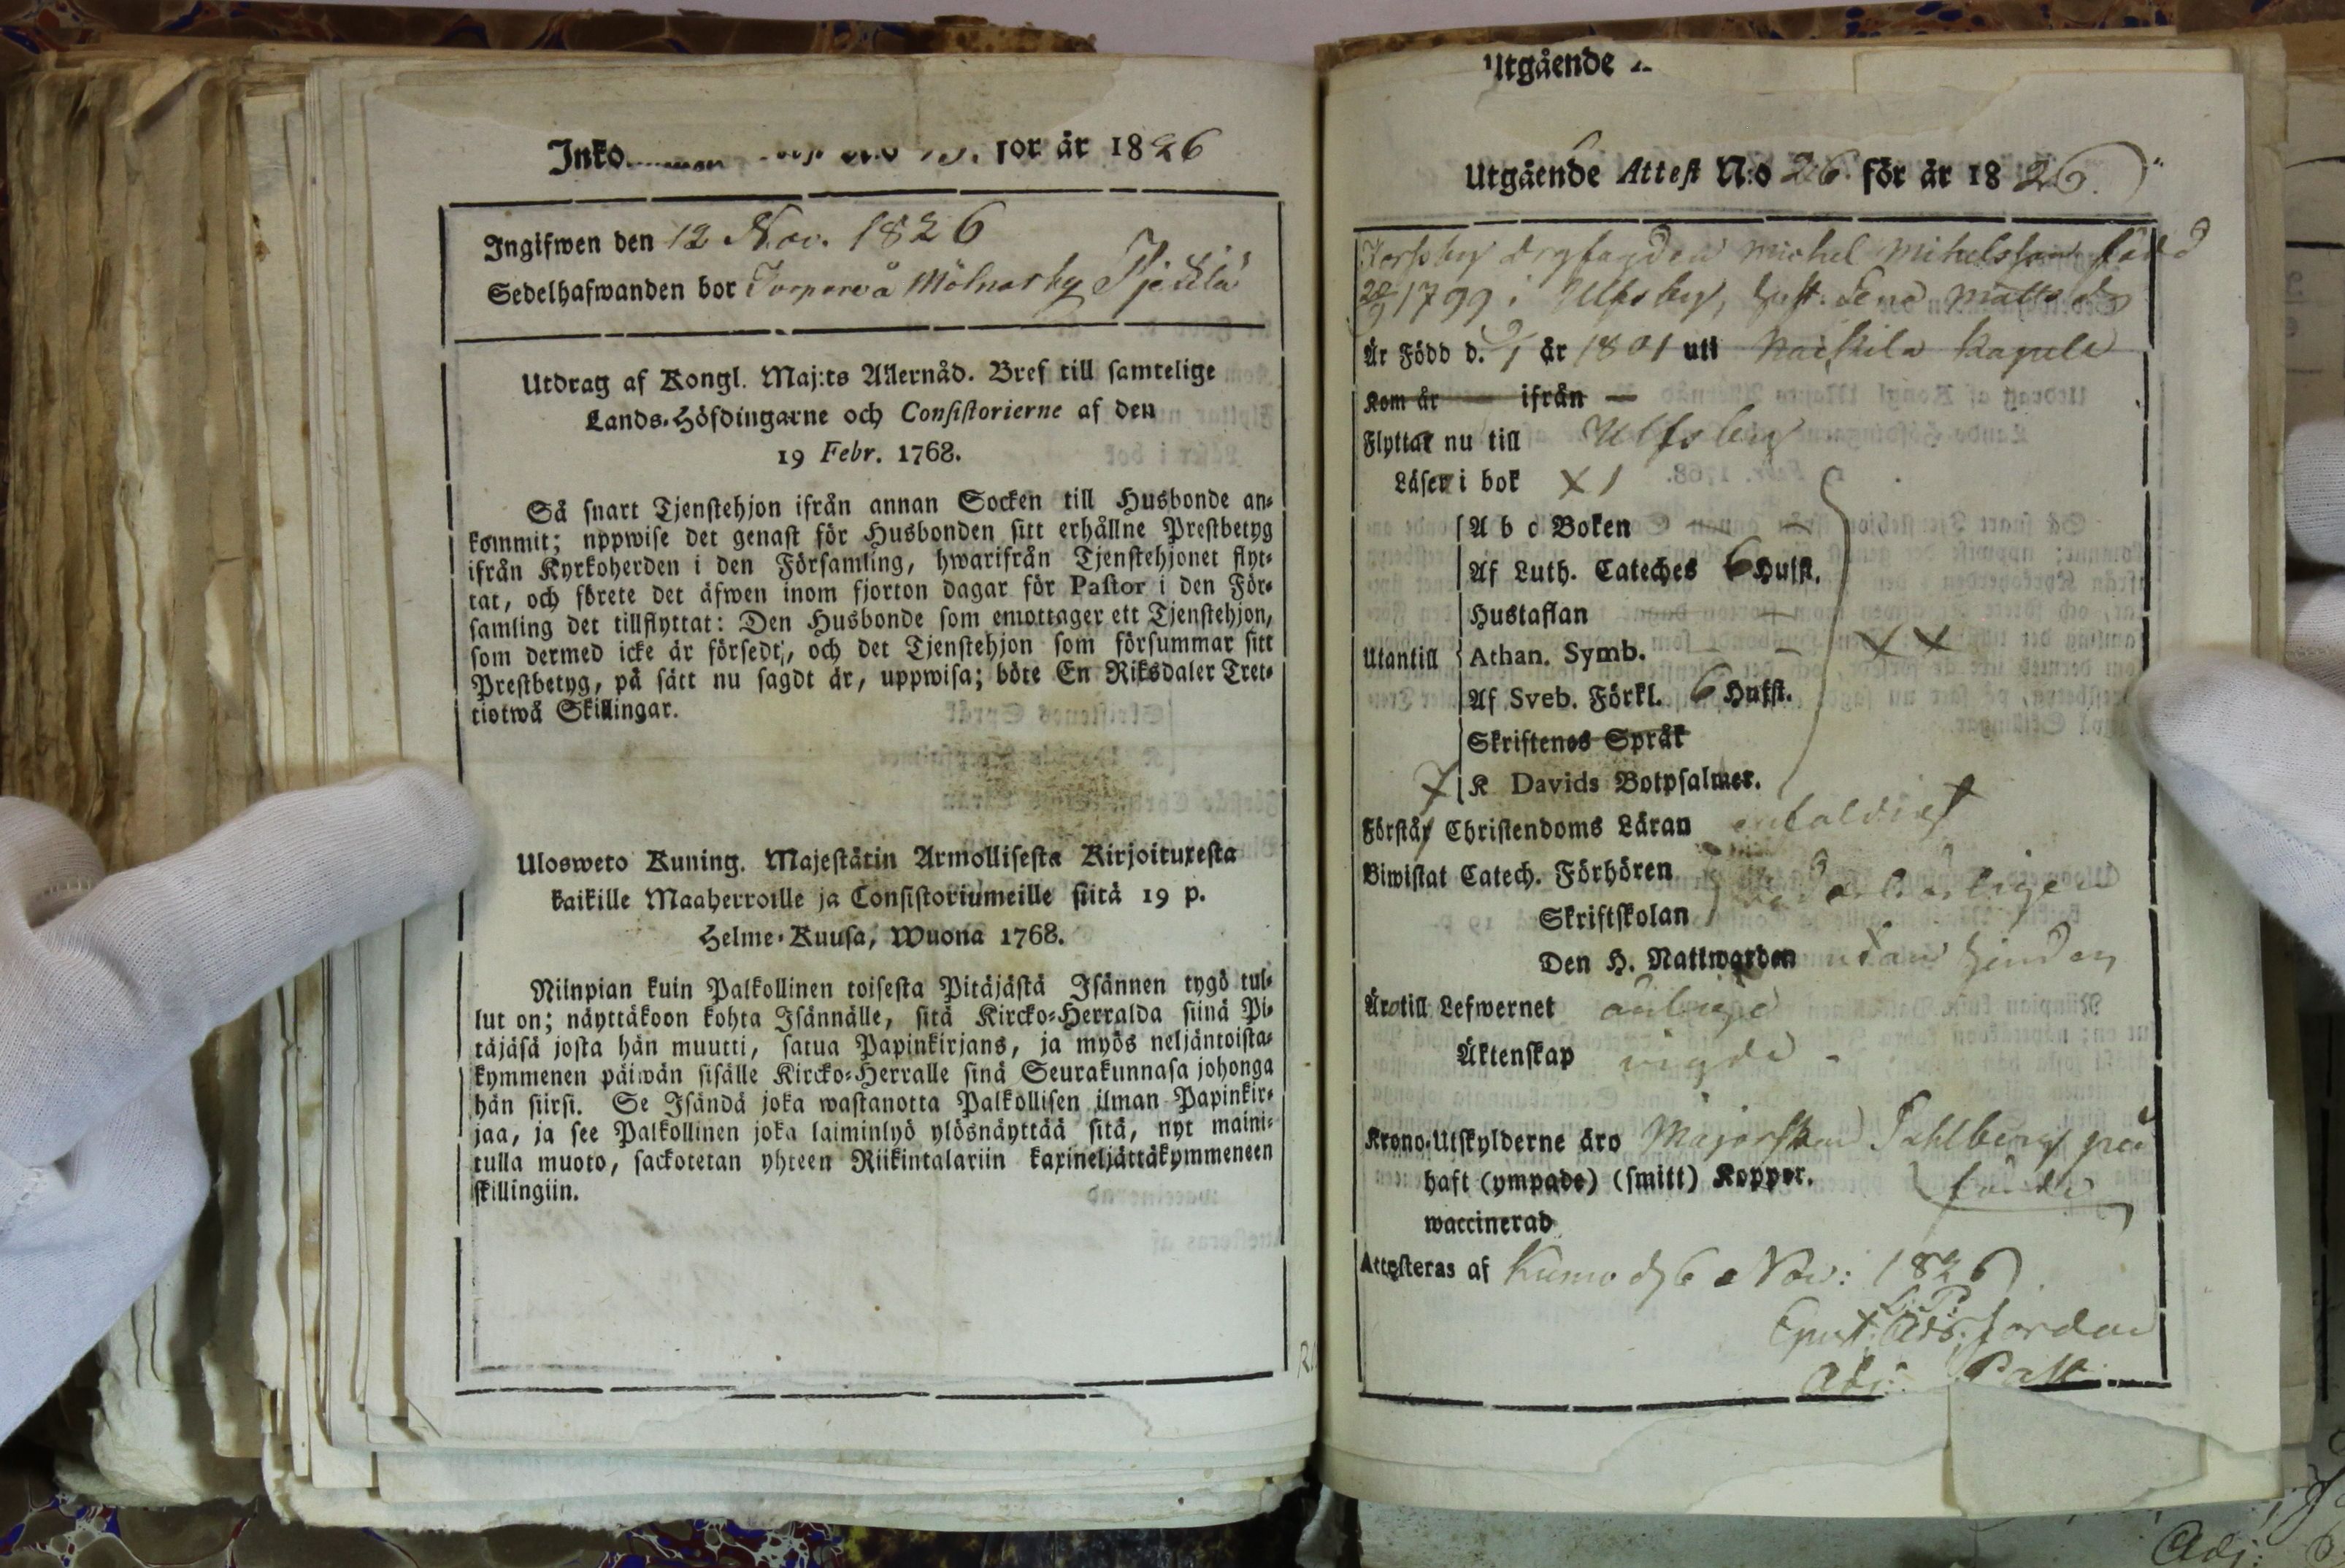 Inko... for år 1826
Ingifwen den 12 Nov. 1826
Sedelhafwanden bor Torparea Mölnarby
Utdrag af Kongl. Maj:ts Allernåd. Bref till samtelige
Lands-Höfdingarne och Consistorierne af den
19 Febr. 1768.
Så snart Tjenstehjon ifrån annan Socken till Husbonde an-
kommit; uppwise det genast för Husbonden sitt erhållne Prestbetyg
ifrån Kyrkoherden i den Församling, hwarifrån Tjenstehjonet flyt-
tat, och förete det äfwen inom fjorton dagar för Pastor i den För-
samling det tillflyttat: Den Husbonde som emottager ett Tjenstehjon,
som dermed icke är försedt, och det Tjenstehjon som försummar sitt
Prestbetyg, på sätt nu sagdt är, uppwisa; böte En Riksdaler Tret-
tiotwå Skillingar.
Ulosweto Kuning. Majestätin Armollisesta Kirjoituxesta
kaikille Maaherroille ja Consistoriumeille siitä 19 p.
Helme-Kuusa, Wuona 1768.
Niinpian kuin Palkollinen toisesta Pitäjästä Isännen tygö tul-
lut on; näyttäkoon kohta Isännälle, sitä Kircko-Herralda siinä Pi-
täjäsä josta hän muutti, satua Papinkirjans, ja myös neljäntoista-
kymmenen päiwän sisälle Kircko-Herralle sinä Seurakunnasa johonga
hän siirsi. Se Isändä joka wastanotta Palkollisen ilman Papinkir-
jaa, ja see Palkollinen joka laiminlyö ylösnäyttää sitä, nyt maini-
tulla muoto, sackotetan yhteen Riikintalariin kaxineljättäkymmeneen
skillingiin.
Utgående
Utgående Attest N:o 26 för år 1826.
Torsby drgfagden Michel Mikelsson född
20/9 1799 i Ulfsby, hust. Lena Matts dr
Är Född d. 9/1 år 1801 uti Nackila Kapell
Kom år ifrån
Flyttar nu till Ulfsby
Läser i bok X 1
A b c Boken
Af Luth. Cateches 6 Hufst.
Hustaflan
Utantill Athan. Symb. X X
Af Sveb. Förkl. 6 Hufst.
Skriftenes Språk
7 K Davids Botpsalmer.
Förstår Christendoms Läran enfaldigt
Biwistat Catech. Förhören
Skriftskolan
Den H. Nattwarden utan hinder
Äro till Lefwernet ärlige
Äktenskap vigde
Krono-Utskylderne äro Majorskan Fahlberg på
haft (ympade) (smitt) Koppor. förde
waccinerad
Attesteras af Kumo d 6 Nov: 1826
L. P.
Jordan
Adj. Past.
Adj.